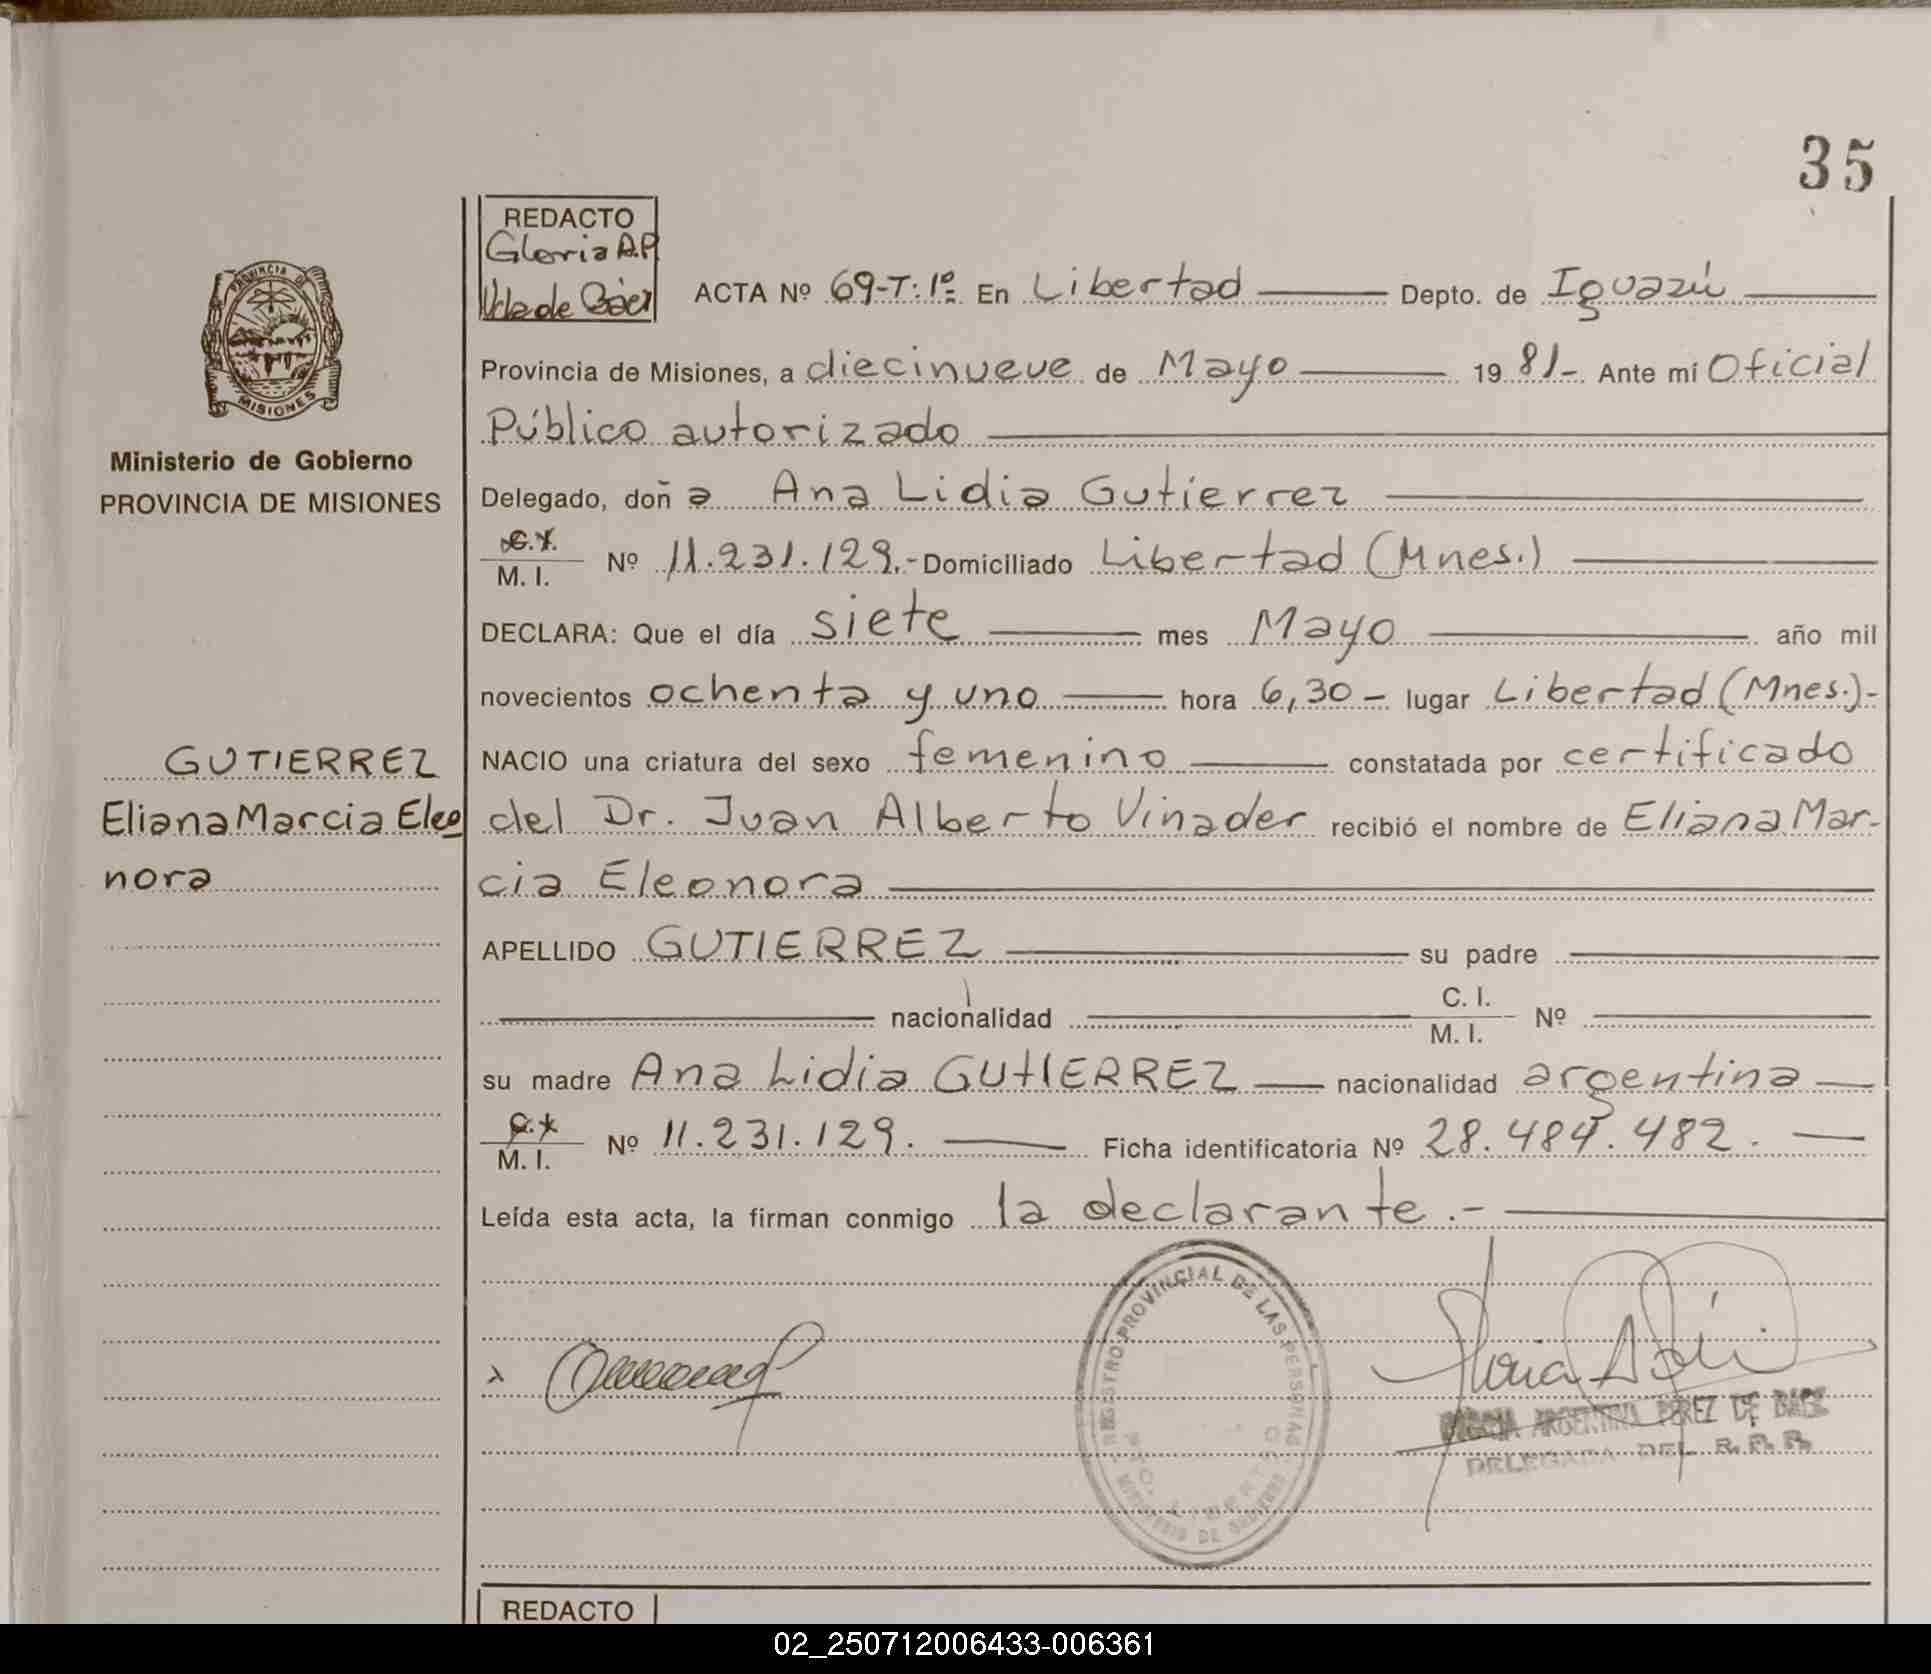 35
REDACTO
Gloria A.P.
Vda de Báez
ACTA Nº 69-T:1º- En Libertad Depto. de Iguazú
PROVINCIA DE
MISIONES
Provincia de Misiones, a diecinueve de Mayo 1981- Ante mí Oficial
Público autorizado
Ministerio de Gobierno
PROVINCIA DE MISIONES
Delegado, doña Ana Lidia Gutierrez
C.I.
M. I. Nº 11.231.129.- Domiciliado Libertad (Mnes.)
DECLARA: Que el día siete mes Mayo año mil
novecientos ochenta y uno hora 6,30 - lugar Libertad (Mnes.)-
GUTIERREZ
Eliana Marcia Eleo
nora
NACIO una criatura del sexo femenino constatada por certificado
del Dr. Juan Alberto Vinader recibió el nombre de Eliana Mar-
cia Eleonora
APELLIDO GUTIERREZ su padre
nacionalidad C. I.
M. I. Nº
su madre Ana Lidia GUtIERREZ nacionalidad argentina
C.I.
M. I. Nº 11.231.129. Ficha identificatoria Nº 28.484.482.
Leída esta acta, la firman conmigo la declarante.-
REGISTRO PROVINCIAL DE LAS PERSONAS
MINISTERIO DE GOBIERNO
ARGENTINA PEREZ DE BAEZ
DELEGADA DEL R.P.P.
REDACTO
02_250712006433-006361